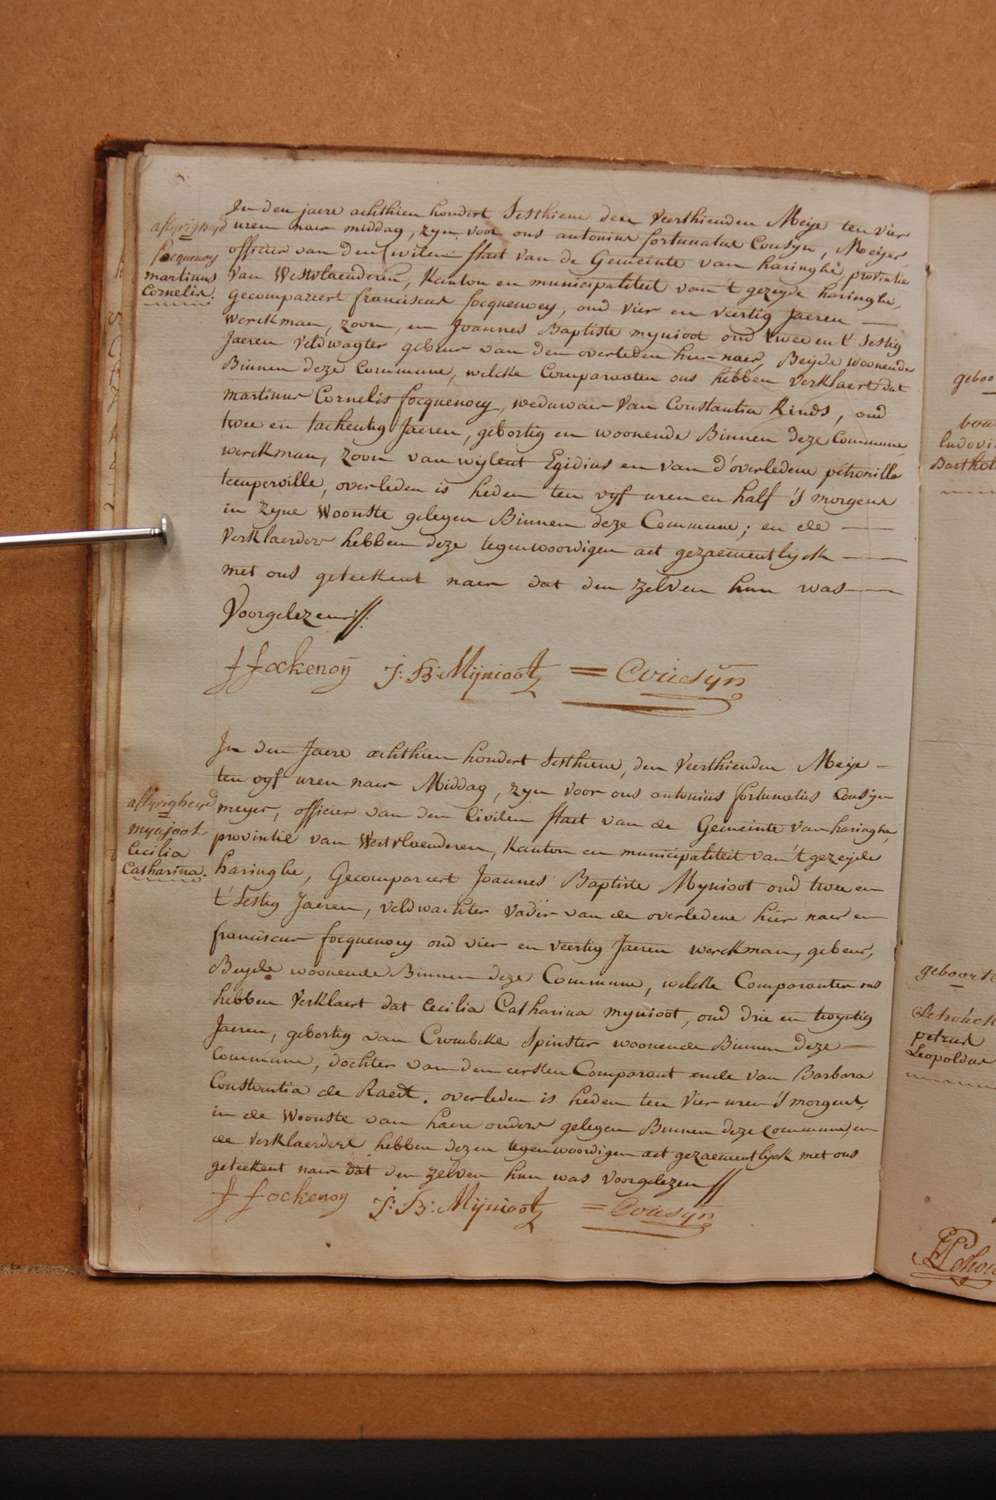 aflyvigheyd
Focquenoey
martinus
Cornelis.
In den jaere achthien hondert Sesthiene den Veerthienden Meije ten vier
uren naer middag, zyn voor ons antonius fortunatus Cousyn, Meijer
officier van den Civilen staet van de Gemeente van haringhe, provintie
Van Westvlaenderen, Kanton en municipaliteit van 't gezeyde haringhe,
Gecompareert franciscus focquenoey, oud vier en veertig Jaeren
Werckman, zoon, en Joannes Baptiste mynioot oud twee en t'Sestig
Jaeren Veldwagter gebeur van den overleden hier naer, Beyde woonende
Binnen deze Commune, welcke Comparanten ons hebben Verklaert dat
martinus Cornelis focquenoey, weduwaer Van Constantia Kinds, oud
twee en tachentig Jaeren, gebortig en woonende Binnen deze Commune
werckman, zoon van wylent Egidius en van d'overledene petronille
temperville, overleden is heden ten vyf uren en half 'S morgens
in Zyne Woonste gelegen Binnen deze Commune; en de
Verklaerders hebben deze tegenwoordigen act gezaementlyck
met ons geteekent naer dat den Zelven hun was
Voorgelezen //.
f fockenoÿ J: B: Mÿnioot = Cousÿn
aflyvigheyd
mynioot
Cecilia
Catharina.
In den Jaere achthien hondert Sesthiene, den Veerthienden Meije
ten vyf uren naer Middag, zyn voor ons antonius fortunatus Cousyn
meyer, officier van den Civilen staet van de Gemeente Van haringhe
provintie van Westvlaenderen, Kanton en municipaliteit van 't gezeyde
haringhe, Gecompareert Joannes Baptiste Mynioot oud twee en
t'Sestig Jaeren, Veldwachter Vader van de overledene hier naer en
franciscus focquenoey oud vier en veertig Jaeren werckman, gebeur,
Beyde woonende Binnen deze Commune, welcke Comparanten ons
hebben Verklaert dat Cecilia Catharina mynioot, oud drie en twyntig
Jaeren, gebortig van Crombeke Spinster woonende Binnen deze
Commune, dochter van den eersten Comparant ende van Barbara
Constantia de Raedt. overleden is heden ten Vier uren 'S morgens,
in de Woonste van haere ouders gelegen Binnen deze Commune, en
de Verklaerders hebben dezen tegenwoordigen act gezaementlyck met ons
geteekent naer dat den Zelven hun was Voorgelezen //
f fockenoy J: B: Mÿnioot = Cousÿn
geboorte
petrus
Leopoldus